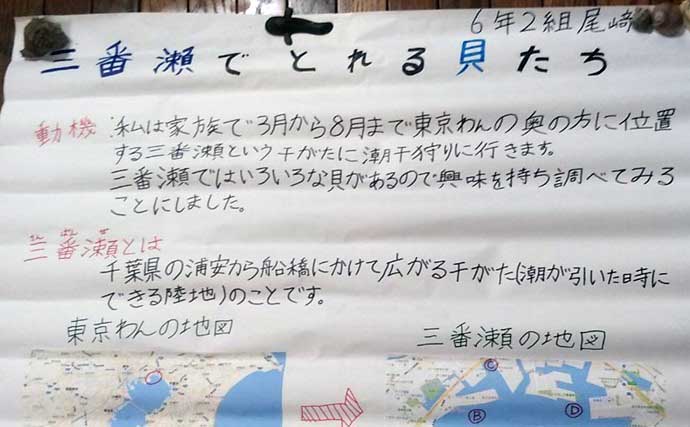 6年2組尾﨑
三番瀬でとれる貝たち
動機 私は家族で3月から8月まで東京わんの奥の方に位置
する三番瀬という干がたに潮干狩りに行きます。
三番瀬ではいろいろな貝があるので興味を持ち調べてみる
ことにしました。
さん ばん ぜ
三番瀬とは
千葉県の浦安から船橋にかけて広がる干がた(潮が引いた日時に
できる陸地)のことです。
東京わんの地図
三番瀬の地図
C
B
D